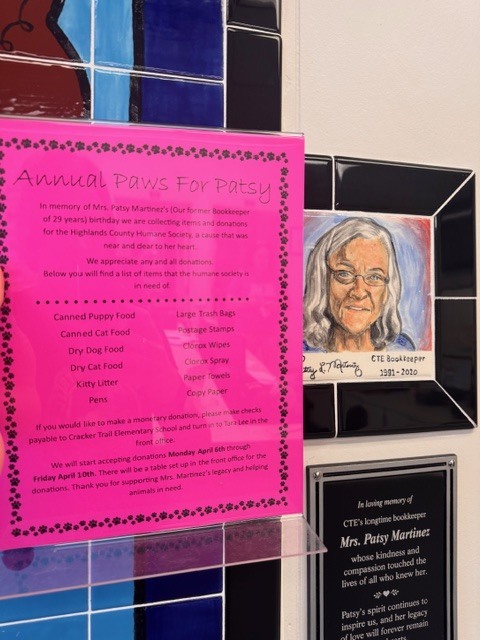 Annual Paws For Patsy
In memory of Mrs. Patsy Martinez's (Our former Bookkeeper
of 29 years) birthday we are collecting items and donations
for the Highlands County Humane Society, a cause that was
near and dear to her heart.
We appreciate any and all donations.
Below you will find a list of items that the humane society is
in need of.
Canned Puppy Food
Canned Cat Food
Dry Dog Food
Dry Cat Food
Kitty Litter
Pens
Large Trash Bags
Postage Stamps
Clorox Wipes
Clorox Spray
Paper Towels
Copy Paper
If you would like to make a monetary donation, please make checks
payable to Cracker Trail Elementary School and turn in to Tara Lee in the
front office.
We will start accepting donations Monday April 6th through
Friday April 10th. There will be a table set up in the front office for the
donations. Thank you for supporting Mrs. Martinez's legacy and helping
animals in need.
L. Martinez
CTE Bookkeeper
1991-2020
In loving memory of
CTE's longtime bookkeeper
Mrs. Patsy Martinez
whose kindness and
compassion touched the
lives of all who knew her.
Patsy's spirit continues to
inspire us, and her legacy
of love will forever remain